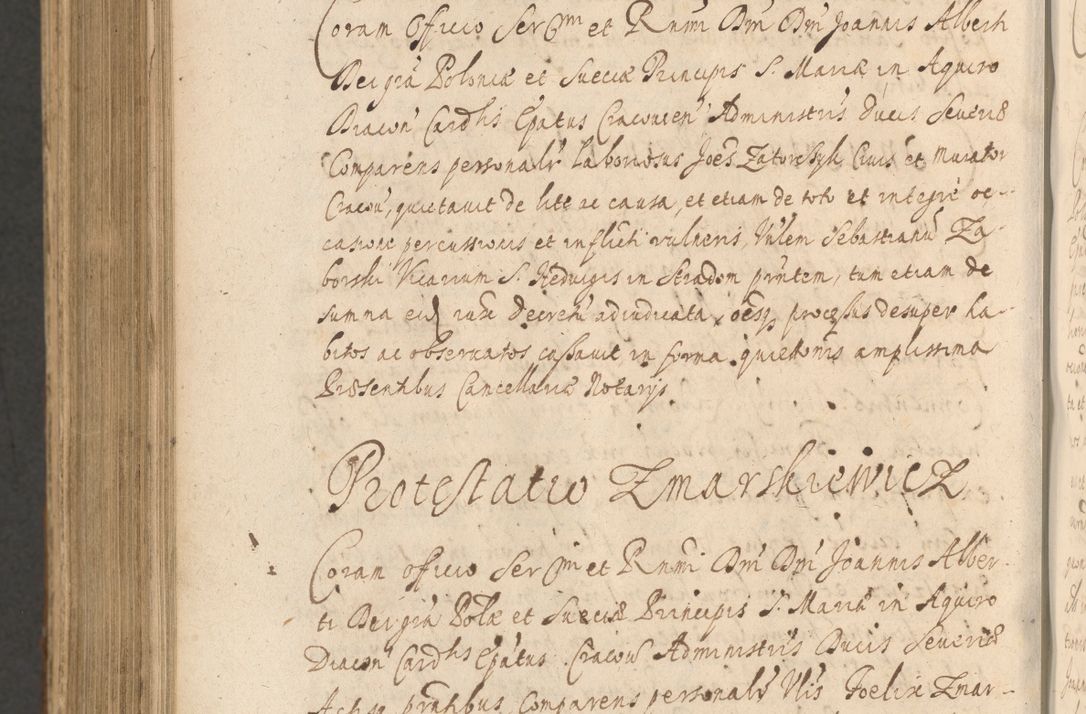 Coram Officio Ser̃mi et Rnmi Dni Dni Joannis Alberti
Dei grã Poloniæ et Sueciæ Principis S. Mariæ in Aquiro
Diacon Cardlis Epatus Cracovien Administris Ducis Severiæ
Comparens personalr Laboriosus Joes Zatorczyk Civis et Murator
Cracov, quietavit de lite ac causa, et etiam de toto et integre oc-
casione percussionis et inflicti vulneris, Vnlem Sebastianũ Za-
borski Vicarium S. Hedvigis in Stradom pn̄tem, tum etiam de
summa eid iuxᵃ Decretũ adiudicata, oesq processus desuper ha-
bitos ac observatos cassavit in forma quiettonis amplissima
Præsentibus Cancellariæ Notarijs
Protestatio Zmarskiewicz
Coram officio Ser̃mi et Rnmi Dni Dni Joannis Alber-
ti Dei grã Polæ et Sueciæ Principis S. Mariæ in Aquiro
Diacon Cardlis Epatus Cracov Administris Ducis Severiæ
Actisq prntibus Comparens personalr Nlis Foelix Zmar-